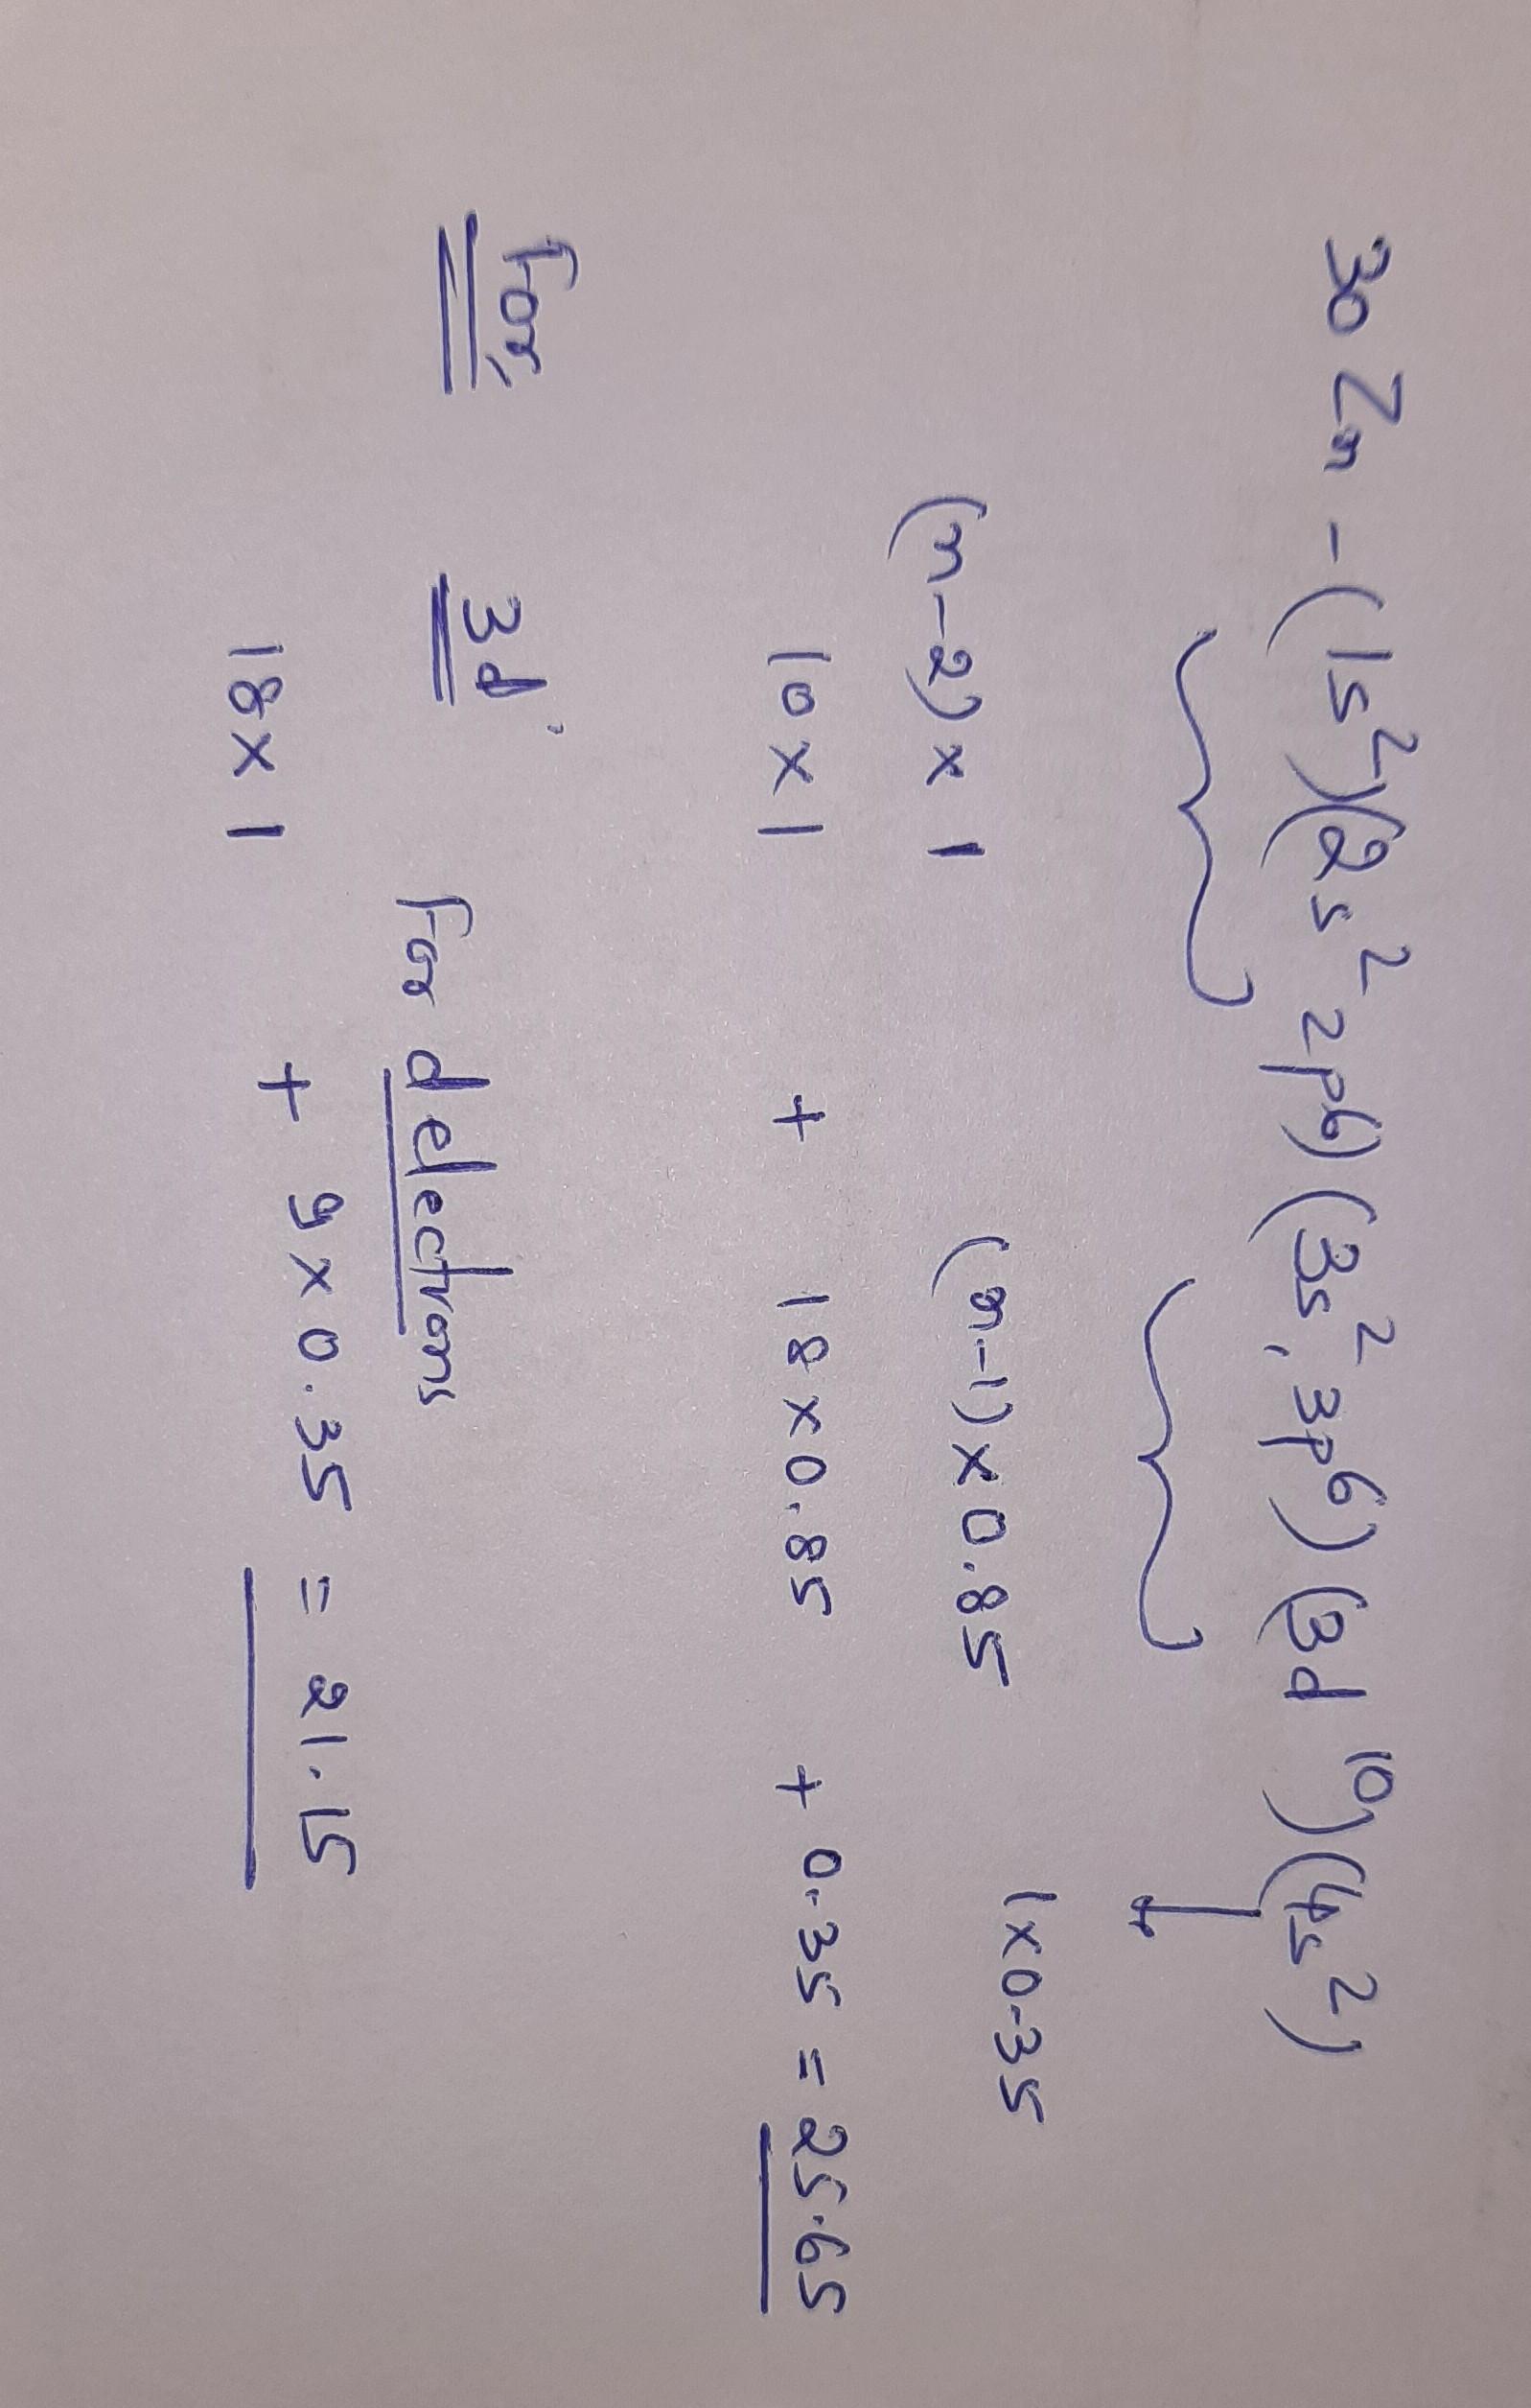 30 Zn - (1s²)(2s² 2p⁶) (3s², 3p⁶) (3d¹⁰) (4s²)
(n-2) x 1 (n-1) x 0.85 1x0.35
10 x 1 + 18 x 0.85 + 0.35 = 25.65
For 3d For d electrons
18 x 1 + 9 x 0.35 = 21.15